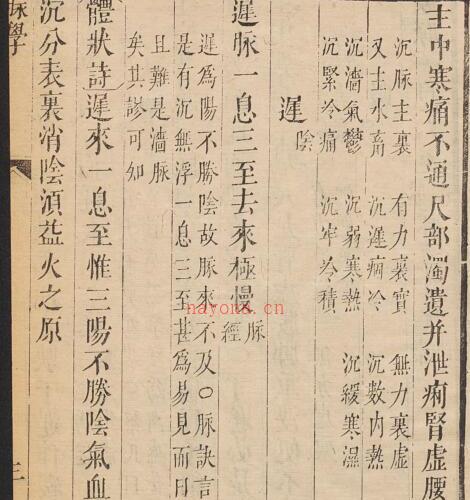 主中寒痛不通尺部濁遺并泄痢腎虛腰
沉脉主裏 有力裏實 無力裏虛
又主水畜 沉遲痼冷 沉數内熱
沉濇氣鬱 沉弱寒熱 沉緩寒濕
沉緊冷痛 沉牢冷積
遲 陰
遲脉一息三至去來極慢 脉經
遲爲陽不勝陰故脉來不及○脉訣言
是有沉無浮一息三至甚爲易見而曰
且難是濇脉
矣其謬可知
體狀詩遲來一息至惟三陽不勝陰氣血
沉分表裏消陰湏益火之原
脉學
三
nayona.cn